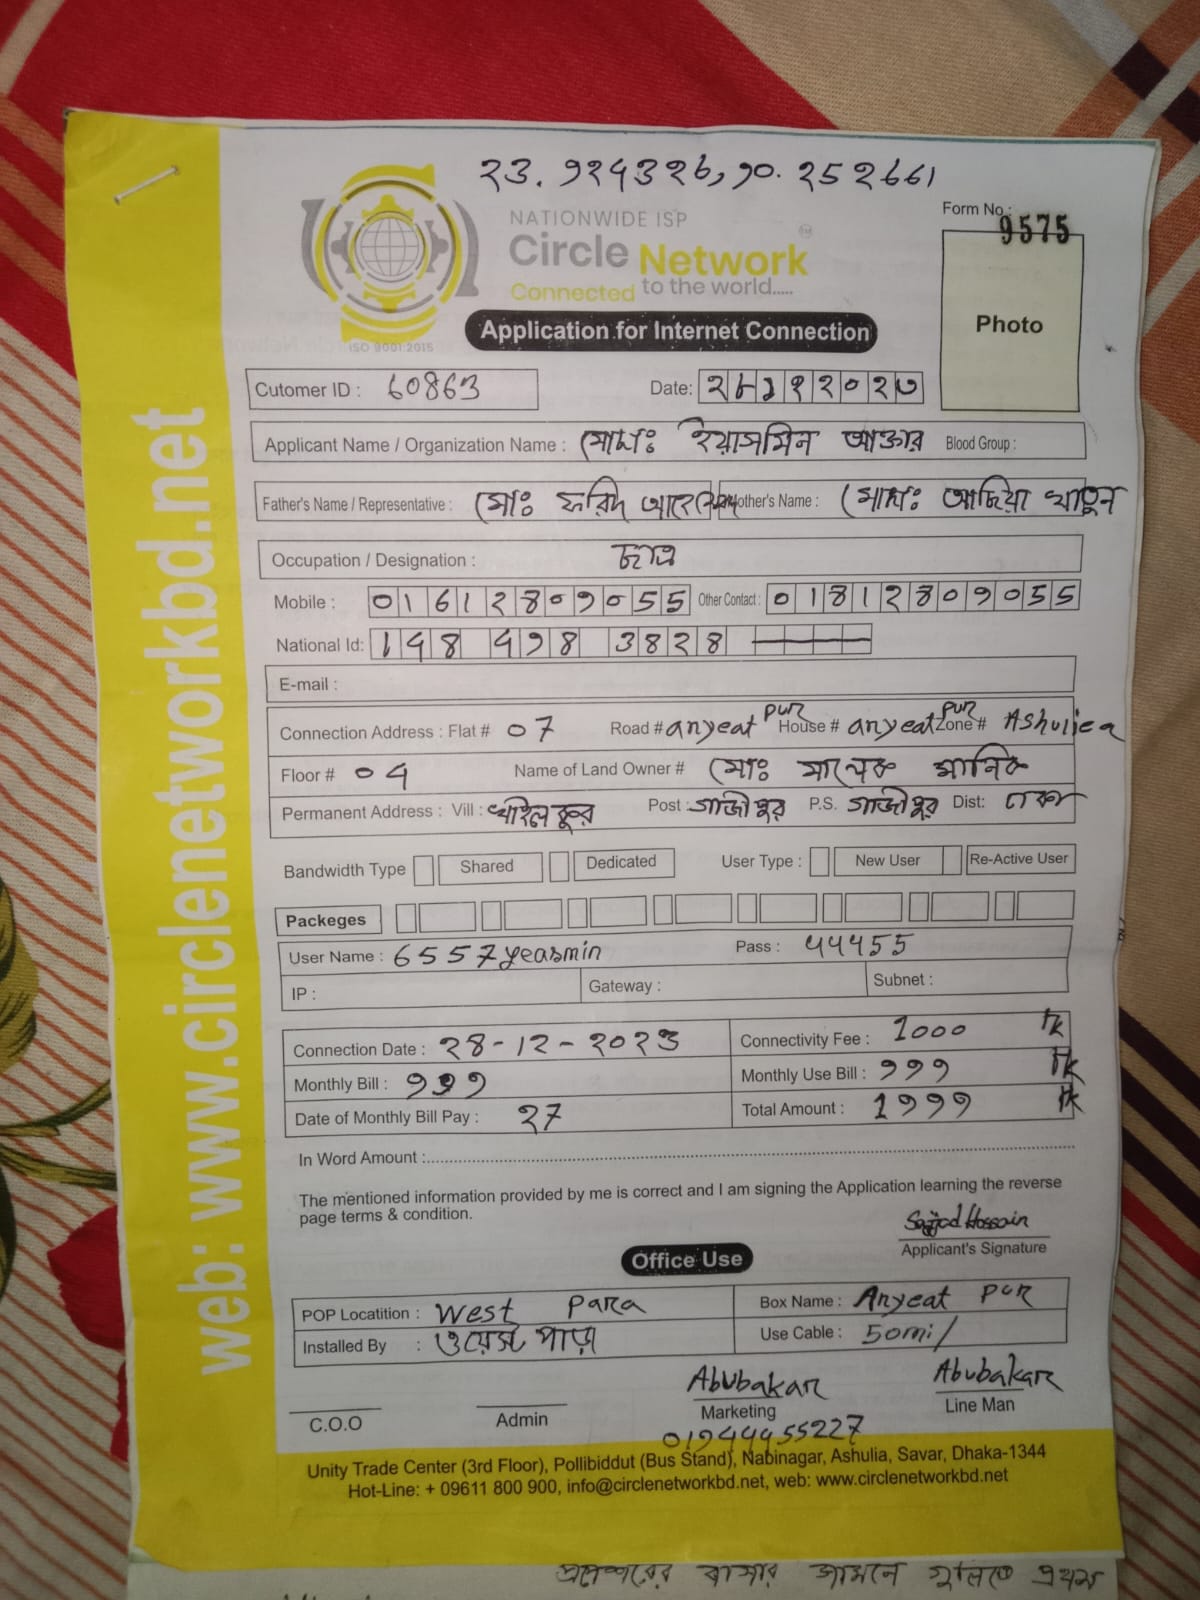 23.924326,90.252661
NATIONWIDE ISP
Form No.: 9575
Circle Network
Connected to the world.....
Photo
ISO 9001:2015
Application for Internet Connection
Cutomer ID : 60863 Date:
Applicant Name / Organization Name : মোছাঃ ইয়াসমিন আক্তার Blood Group :
Father's Name / Representative : মোঃ ফরিদ Mother's Name : মোছাঃ আছিয়া খাতুন
Occupation / Designation : ছাত্র
Mobile : 01612809055 Other Contact : 01812809055
National Id: 148 498 3828
E-mail :
Connection Address : Flat # 07 Road # anyeat pur House # anyeat pur Zone # Ashuliea
Floor # 04 Name of Land Owner # মোঃ মালেক মানিক
Permanent Address : Vill : Post : গাজীপুর P.S. গাজীপুর Dist: ঢাকা
Bandwidth Type Shared Dedicated User Type : New User Re-Active User
Packeges
User Name : 6557yeasmin Pass : 44455
IP : Gateway : Subnet :
Connection Date : 28-12-2023 Connectivity Fee : 1000 Tk
Monthly Bill : 999 Monthly Use Bill : 999 Tk
Date of Monthly Bill Pay : 27 Total Amount : 1999 Tk
In Word Amount :
The mentioned information provided by me is correct and I am signing the Application learning the reverse
page terms & condition.
Sajjad Hossain
Applicant's Signature
Office Use
POP Locatition : West Para Box Name : Anyeat Pur
Installed By : ওয়েস্ট পাড়া Use Cable : 50mi/
Abubakar Abubakar
C.O.O Admin Marketing Line Man
01944955227
Unity Trade Center (3rd Floor), Pollibiddut (Bus Stand), Nabinagar, Ashulia, Savar, Dhaka-1344
Hot-Line: + 09611 800 900, info@circlenetworkbd.net, web: www.circlenetworkbd.net
web: www.circlenetworkbd.net
বাসার সামনে প্রথম